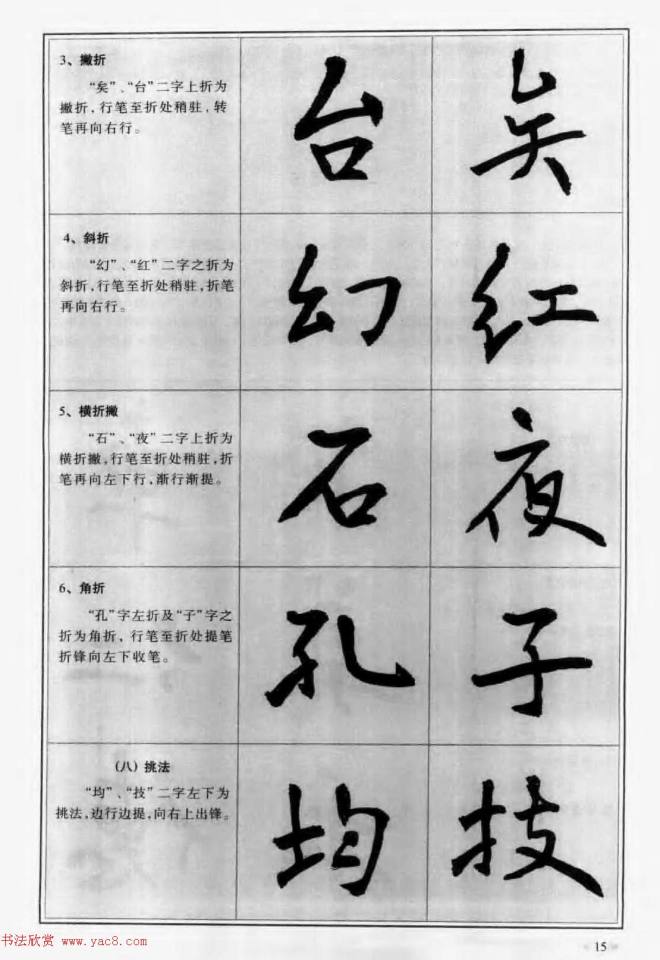 3、撇折
“矣”、“台”二字上折为
撇折，行笔至折处稍驻，转
笔再向右行。
台 矣
4、斜折
“幻”、“红”二字之折为
斜折，行笔至折处稍驻，折笔
再向右行。
幻 红
5、横折撇
“石”、“夜”二字上折为
横折撇，行笔至折处稍驻，折
笔再向左下行，渐行渐提。
石 夜
6、角折
“孔”字左折及“子”字之
折为角折，行笔至折处提笔
折锋向左下收笔。
孔 子
(八) 挑法
“均”、“技”二字左下为
挑法，边行边提，向右上出锋。
均 技
书法欣赏 www.yac8.com
15